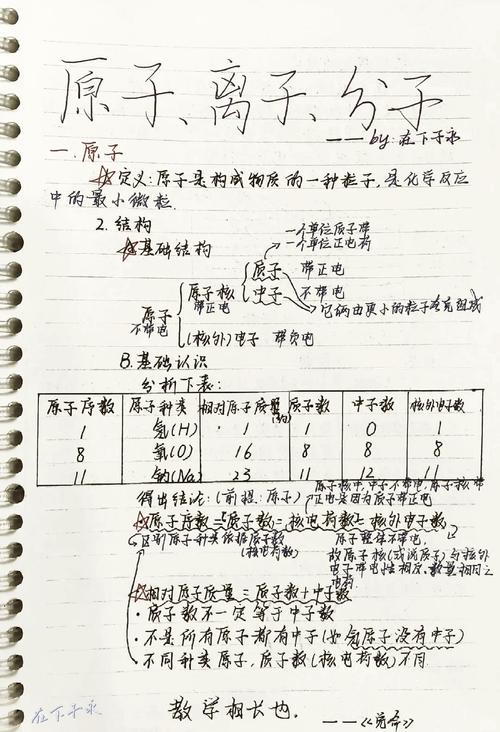 原子、离子、分子
——by:在下子永
一.原子
☆定义:原子是构成物质的一种粒子,是化学反应
中的最小微粒.
2.结构
☆基础结构
一个单位质子带
一个单位正电荷
原子 不带电
原子核 带正电
质子 带正电
中子 不带电
它俩由更小的粒子夸克组成
(核外)电子 带负电
B.基础认识
分析下表:
原子序数 原子种类 相对原子质量(约) 质子数 中子数 核外电子数
1 氢(H) 1 1 0 1
8 氧(O) 16 8 8 8
11 钠(Na) 23 11 12 11
原子核中,中子不带电,原子核带
正电是因为质子带正电
得出结论:(前提:原子)
☆原子序数=质子数=核电荷数=核外电子数
区别原子种类依据质子数
(核电荷数)
原子整体不带电,
故原子核(或说质子)与核外
电子带电性相反,数量相同之
电荷
☆相对原子质量=质子数+中子数
·质子数不一定等于中子数
·不是所有原子都有中子(如氢原子没有中子)
·不同种类原子,质子数(核电荷数)不同
教学相长也.
——《兑命》
在下子永